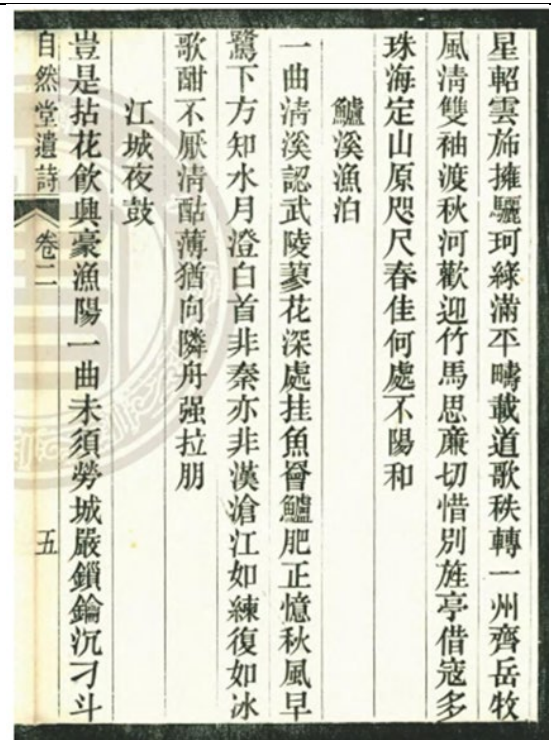 星軺雲斾擁驪珂綠滿平疇載道歌秩轉一州齊岳牧
風清雙袖渡秋河歡迎竹馬思廉切惜別旌亭借寇多
珠海定山原咫尺春佳何處不陽和
鱸溪漁泊
一曲清溪認武陵蓼花深處挂魚罾鱸肥正憶秋風早
鷺下方知水月澄白首非秦亦非漢滄江如練復如冰
歌酣不厭清酤薄猶向隣舟强拉朋
江城夜鼓
豈是拈花飲興豪漁陽一曲未須勞城嚴鎖鑰沉刁斗
自然堂遺詩 卷二 五